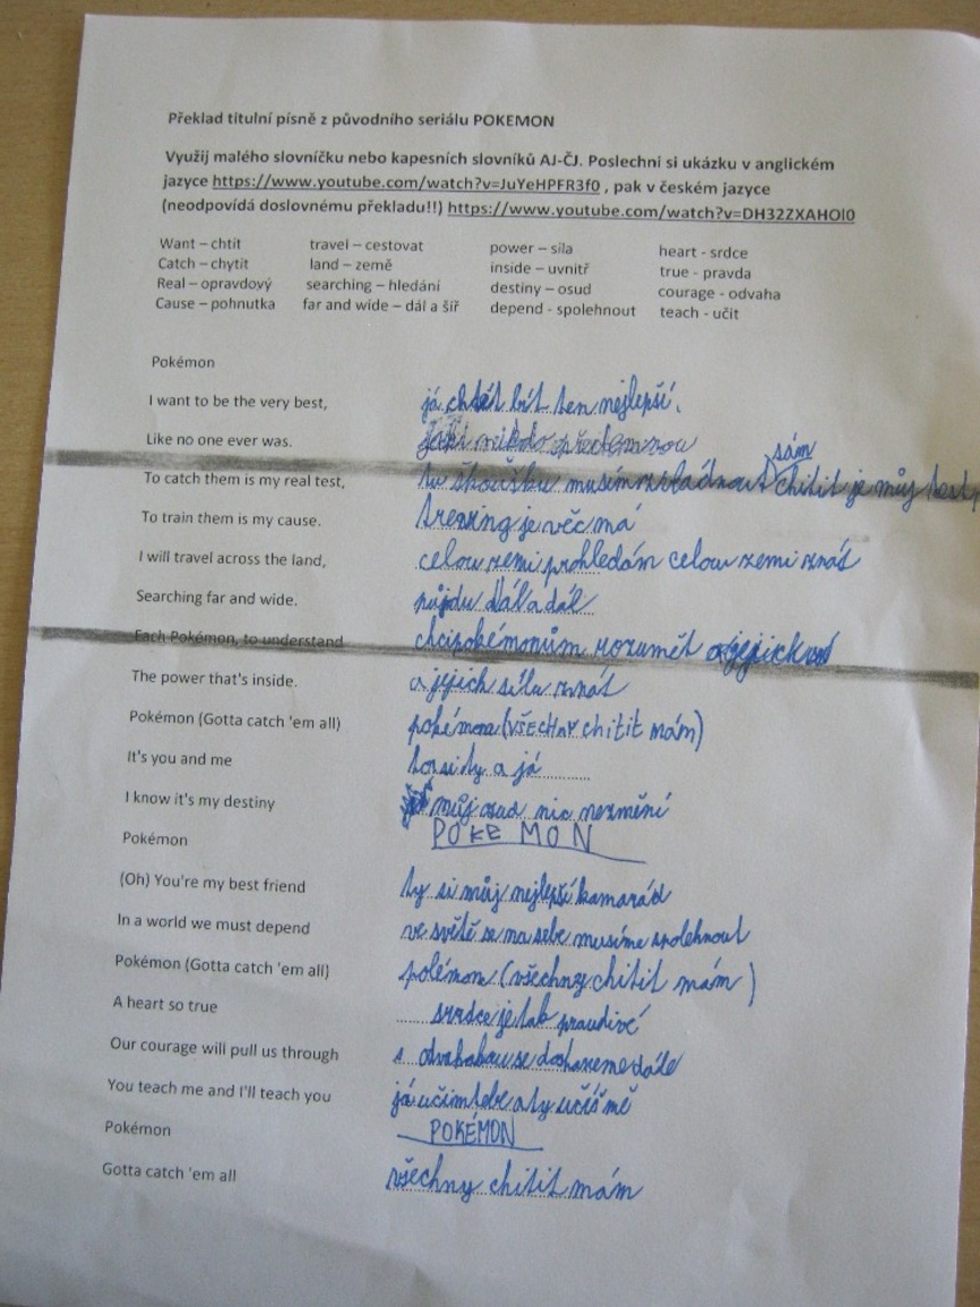 Překlad titulní písně z původního seriálu POKEMON
Využij malého slovníčku nebo kapesních slovníků AJ-ČJ. Poslechni si ukázku v anglickém
jazyce https://www.youtube.com/watch?v=JuYeHPFR3f0 , pak v českém jazyce
(neodpovídá doslovnému překladu!!) https://www.youtube.com/watch?v=DH32ZXAHOl0
Want – chtít travel – cestovat power – síla heart - srdce
Catch – chytit land – země inside – uvnitř true - pravda
Real – opravdový searching – hledání destiny – osud courage - odvaha
Cause – pohnutka far and wide – dál a šíř depend - spolehnout teach - učit
Pokémon
I want to be the very best, já chtěl bít ten nejlepší.
Like no one ever was. jaki nikdo předemnou
sám
To catch them is my real test, tu zkoušku musím zvládnout chitit je můj test,
To train them is my cause. trening je věc má
I will travel across the land, celou zemi prohledám celou zemi znát
Searching far and wide. půjdu dál a dál
Each Pokémon, to understand chci pokémonům rozumět
The power that's inside. a jejich sílu znát
Pokémon (Gotta catch 'em all) pokémon (VŠECHNY chitit mám)
It's you and me to si ty a já
I know it's my destiny můj osud nic nezmění
Pokémon POKEMON
(Oh) You're my best friend ty si můj nejlepší kamarád
In a world we must depend ve světě se na sebe musíme spolehnout
Pokémon (Gotta catch 'em all) polémon (všechny chitit mám)
A heart so true srdce je tak pravdivé
Our courage will pull us through s se dále
You teach me and I'll teach you já učím tebe a ty učíš mě
Pokémon POKÉMON
Gotta catch 'em all všechny chitit mám